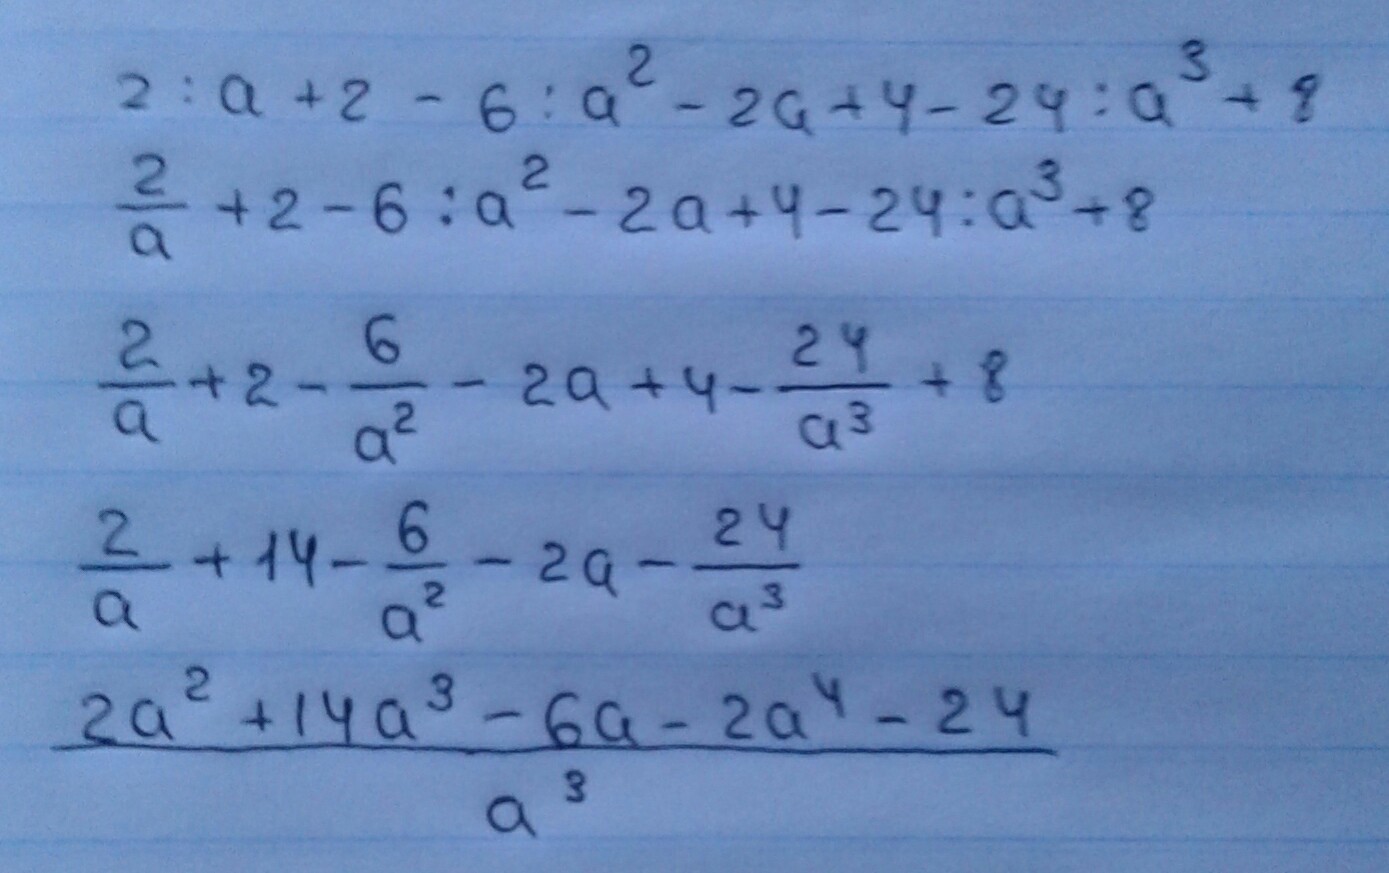 2 : a + 2 - 6 : a² - 2a + 4 - 24 : a³ + 8
2/a + 2 - 6 : a² - 2a + 4 - 24 : a³ + 8
2/a + 2 - 6/a² - 2a + 4 - 24/a³ + 8
2/a + 14 - 6/a² - 2a - 24/a³
(2a² + 14a³ - 6a - 2a⁴ - 24)/a³